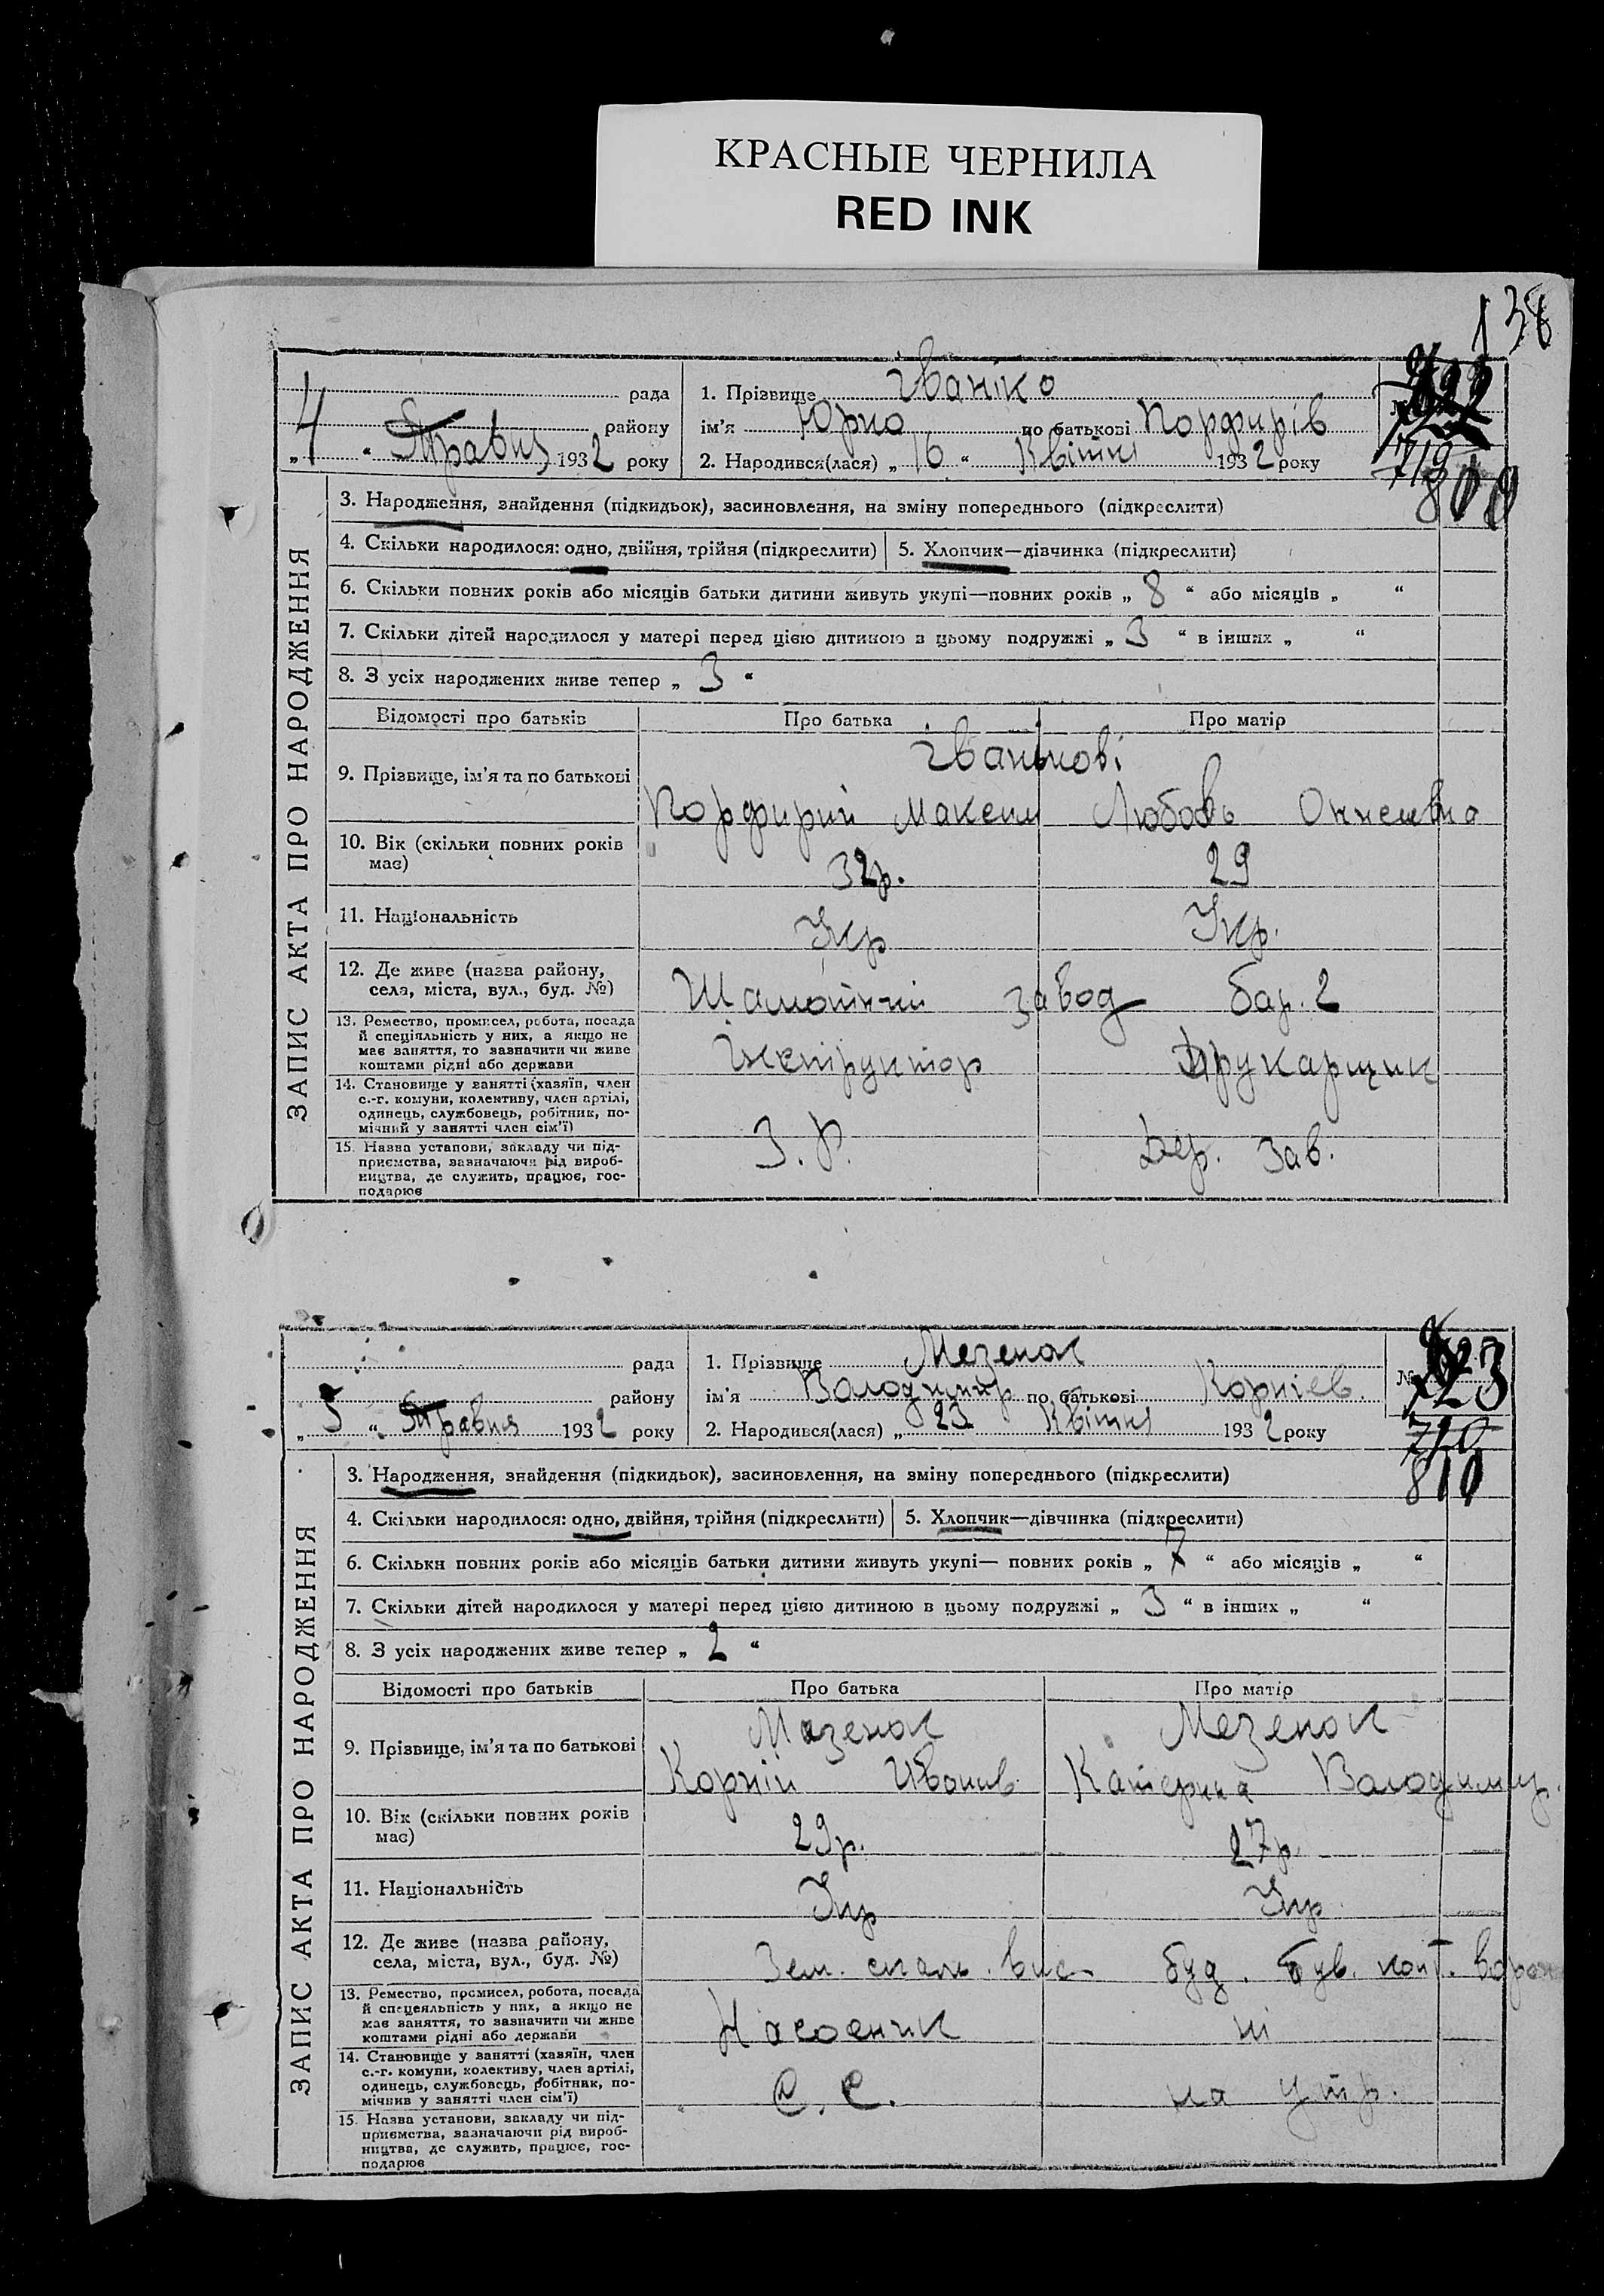 КРАСНЫЕ ЧЕРНИЛА
RED INK
138
рада
району
„ 4 “ Травня 1932 року
1. Прізвище Іваніко
ім'я Юрко по батькові Порфирів
2. Народився(лася) „ 16 “ Квітня 1932 року
719
ЗАПИС АКТА ПРО НАРОДЖЕННЯ
3. Народження, знайдення (підкидьок), засиновлення, на зміну попереднього (підкреслити)
4. Скільки народилося: одно, двійня, трійня (підкреслити) 5. Хлопчик—дівчинка (підкреслити)
6. Скільки повних років або місяців батьки дитини живуть укупі—повних років „ 8 “ або місяців „ “
7. Скільки дітей народилося у матері перед цією дитиною в цьому подружжі „ 3 “ в інших „ “
8. З усіх народжених живе тепер „ 3 “
Відомості про батьків Про батька Про матір
9. Прізвище, ім'я та по батькові
Порфирий Максим Любовь
10. Вік (скільки повних років має) 32р. 29
11. Національність Укр Укр.
12. Де живе (назва району, села, міста, вул., буд. №) Шамотний завод бар. 2
13. Ремество, промисел, робота, посада й спеціяльність у них, а якщо не має заняття, то зазначити чи живе коштами рідні або держави
Інструктор
14. Становище у занятті (хазяїн, член с.-г. комуни, колективу, член артілі, одинець, службовець, робітник, помічний у занятті член сім'ї) З. Р.
15. Назва установи, закладу чи підприємства, зазначаючи рід виробництва, де служить, працює, господарює
зав.
рада
району
„ 5 “ Травня 1932 року
1. Прізвище Мезенок
ім'я Володимир по батькові Корнієв.
2. Народився(лася) „ 23 Квітня 1932 року
№ 723
719
810
ЗАПИС АКТА ПРО НАРОДЖЕННЯ
3. Народження, знайдення (підкидьок), засиновлення, на зміну попереднього (підкреслити)
4. Скільки народилося: одно, двійня, трійня (підкреслити) 5. Хлопчик—дівчинка (підкреслити)
6. Скільки повних років або місяців батьки дитини живуть укупі— повних років „ 7 “ або місяців „ “
7. Скільки дітей народилося у матері перед цією дитиною в цьому подружжі „ 3 “ в інших „ “
8. З усіх народжених живе тепер „ 2 “
Відомості про батьків Про батька Про матір
9. Прізвище, ім'я та по батькові
Мезенок Мезенок
Корній Иванів. Катерина Володимир.
10. Вік (скільки повних років має) 29р. 27р.
11. Національність Укр Укр
12. Де живе (назва району, села, міста, вул., буд. №) Зем. буд.
13. Ремество, промисел, робота, посада й спецеяльність у них, а якщо не має заняття, то зазначити чи живе коштами рідні або держави
Насосчик ні
14. Становище у занятті (хазяїн, член с.-г. комуни, колективу, член артілі, одинець, службовець, робітник, помічнив у занятті член сім'ї) С. С. на утр.
15. Назва установи, закладу чи підприємства, зазначаючи рід виробництва, де служить, працює, господарює